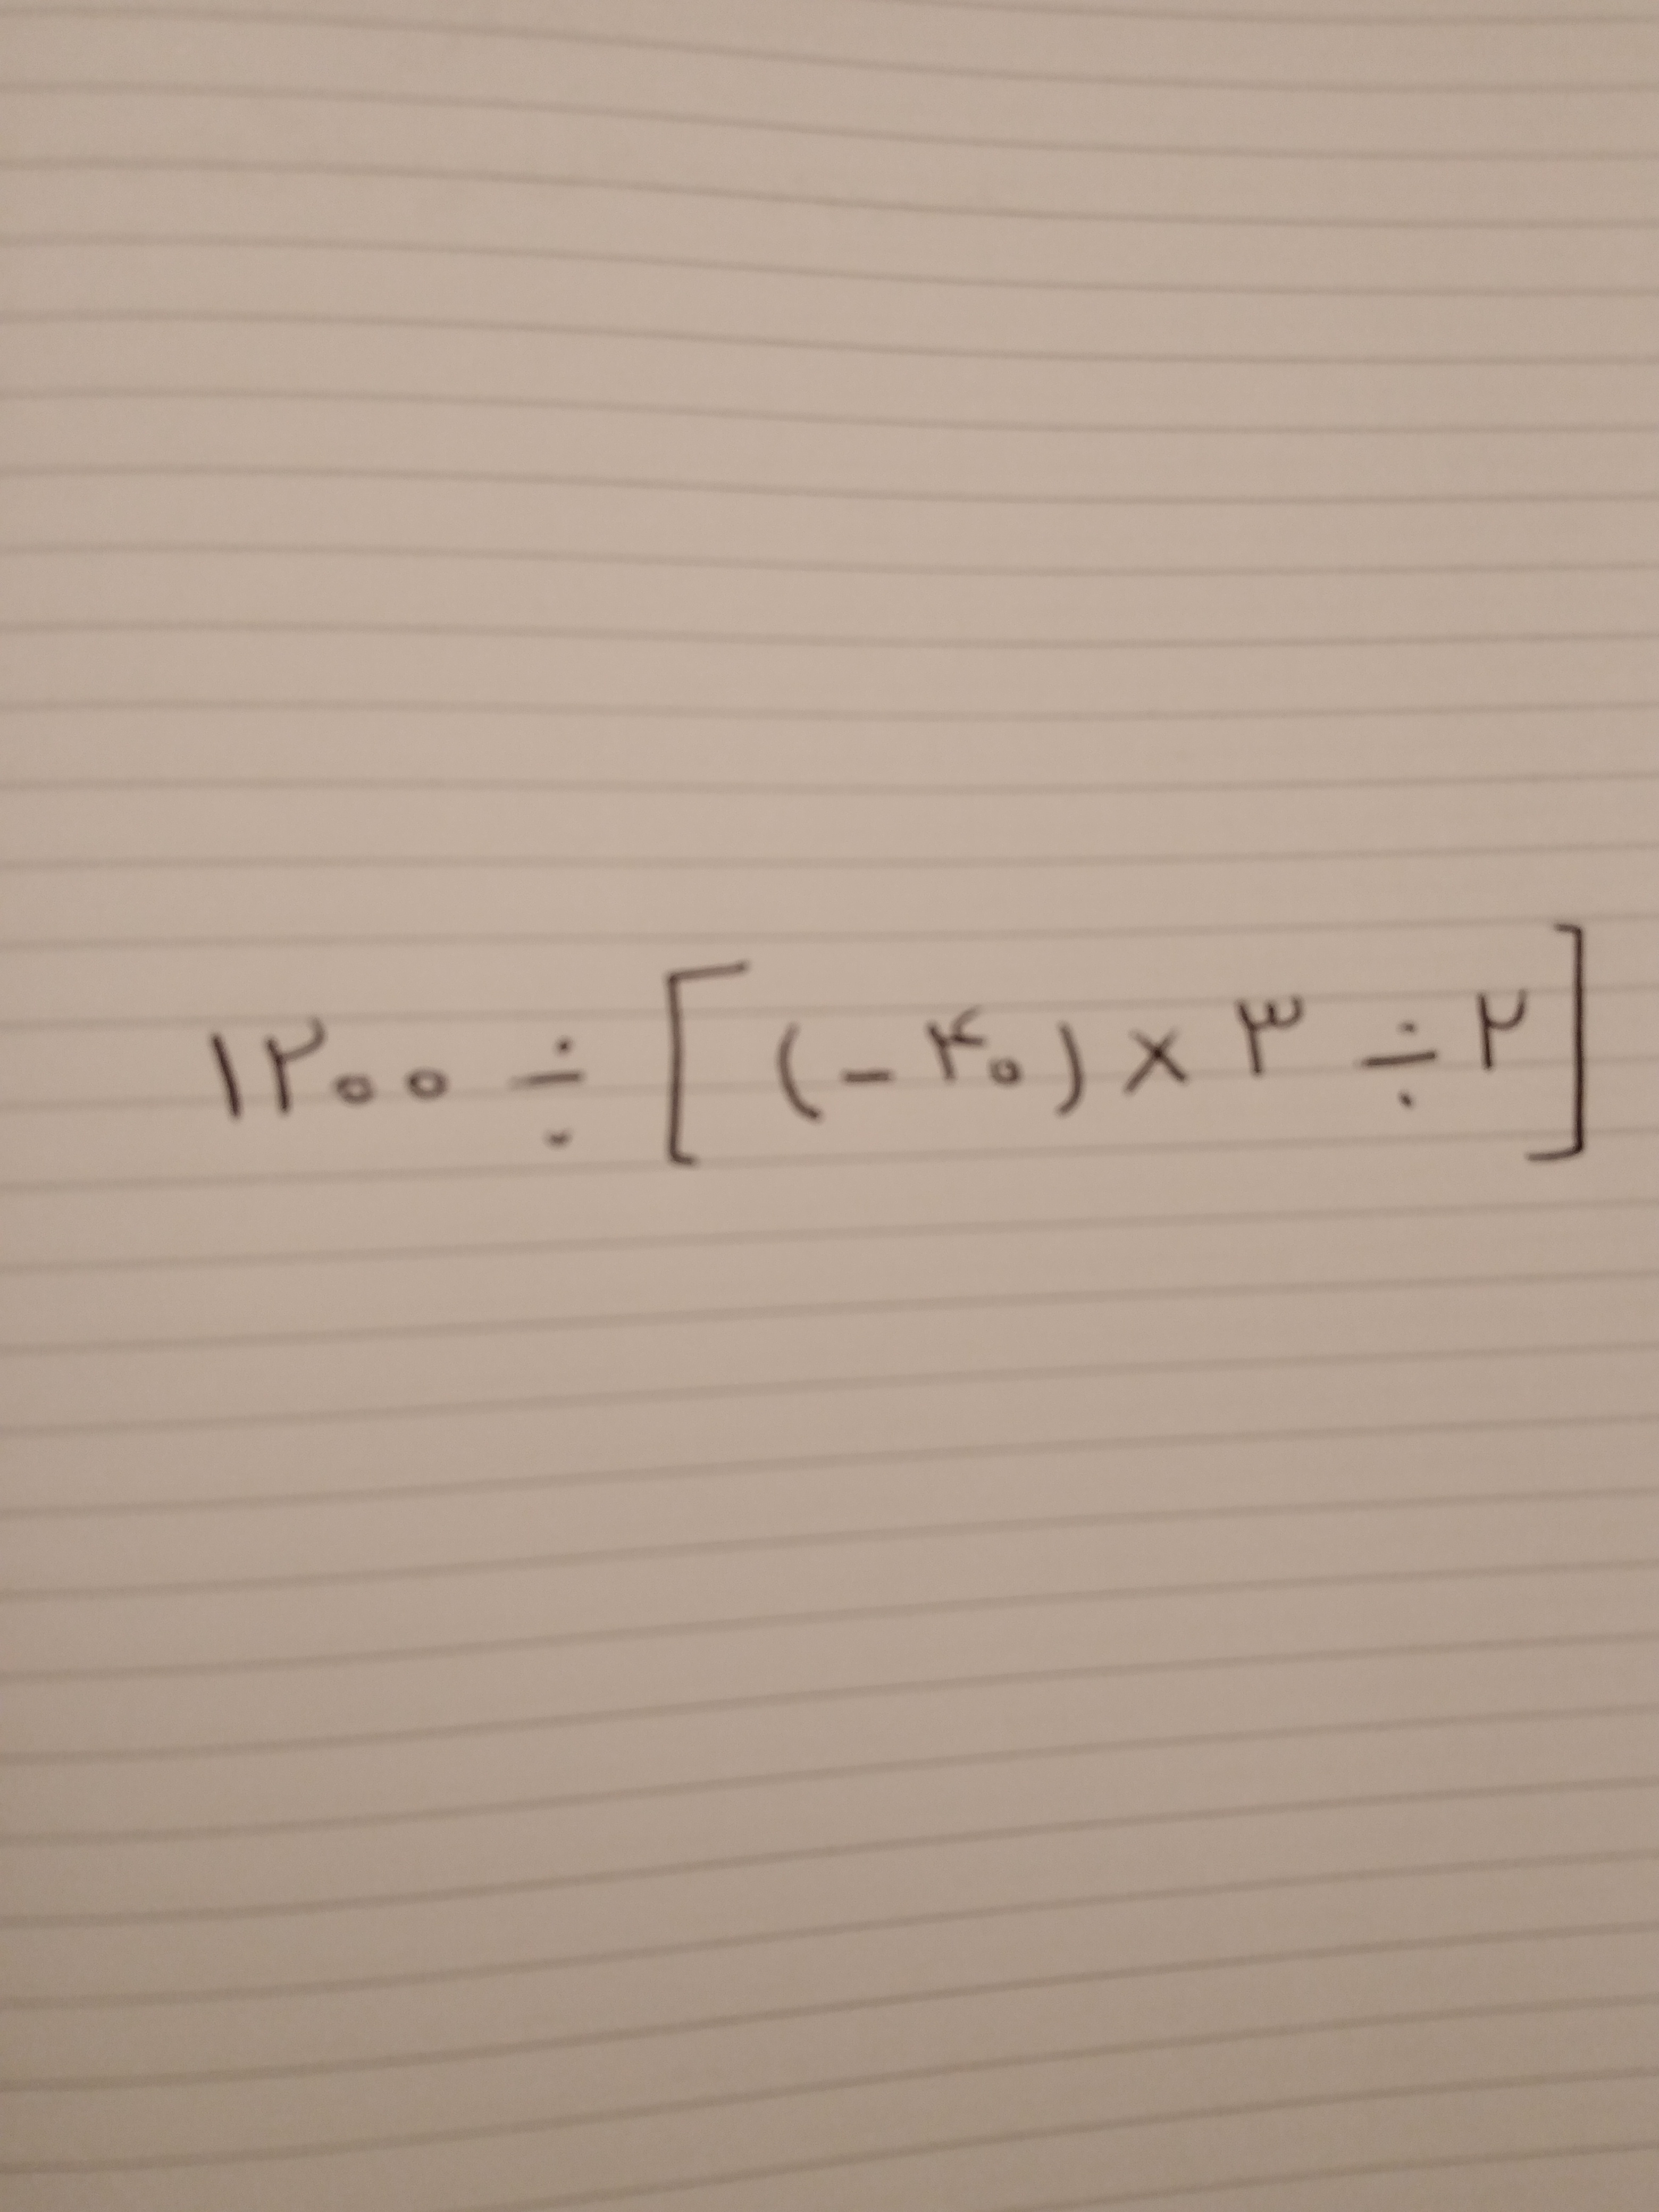 ۱۲۰۰ ÷ [ (-۴۰) × ۳ ÷ ۲ ]